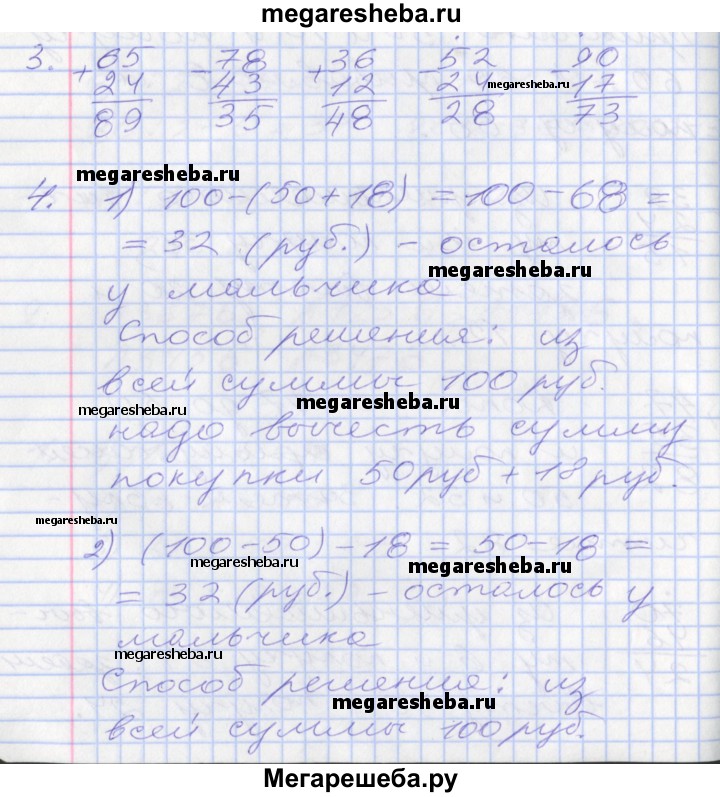 megaresheba.ru
3. +65 -78 +36 -52 -90
24 43 12 24 17
megaresheba.ru
89 35 48 28 73
megaresheba.ru
4. 1) 100-(50+18) = 100-68 =
= 32 (руб.) - осталось
megaresheba.ru
у мальчика
Способ решения: из
всей суммы 100 руб.
megaresheba.ru
megaresheba.ru
надо вычесть сумму
покупки 50руб + 18руб.
megaresheba.ru
2) (100-50)-18 = 50-18 =
megaresheba.ru
megaresheba.ru
= 32 (руб.) - осталось у
мальчика
megaresheba.ru
Способ решения: из
megaresheba.ru
всей суммы 100 руб.
Мегарешеба.ру